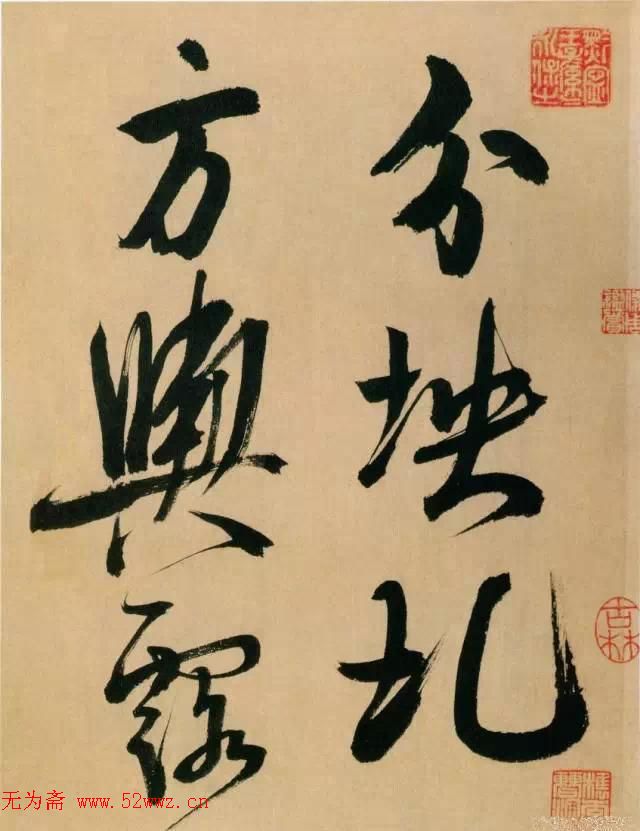 分坱圠
方輿露
吉林
无为斋 www.52wwz.cn